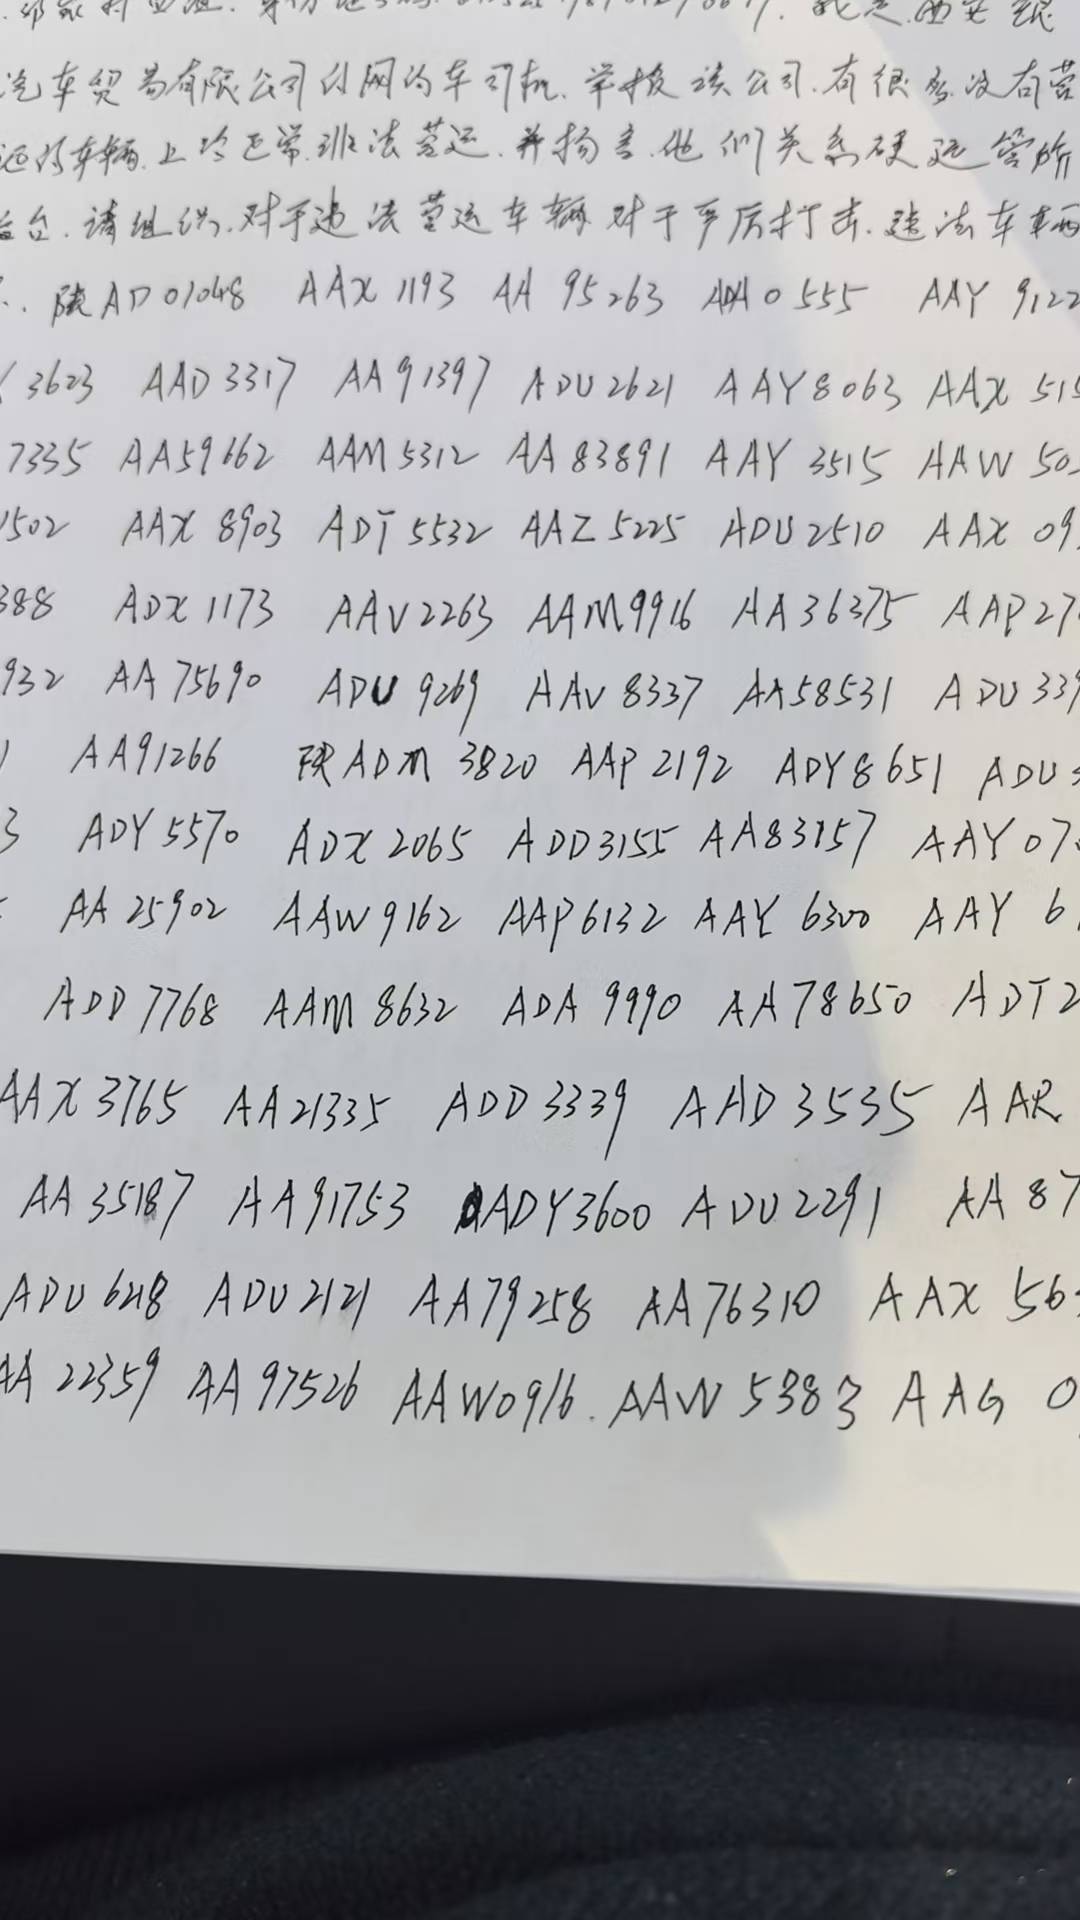 汽车贸易有限公司的网约车司机.举报该公司.有很多没有营
运的车辆.上路正常非法营运.并扬言.他们关系硬运管所
台.请组织.对于违法营运车辆对于严厉打击.违法车辆
陕AD01048 AAX1193 AA95263 ADA0555 AAY9122
3623 AAD3317 AA91397 ADU2621 AAY8063 AAX515
7335 AA59662 AAM5312 AA83891 AAY3515 AAW50
1502 AAX8903 ADT5532 AAZ5225 ADU2510 AAX09
388 ADX1173 AAV2263 AAM9916 AA36375 AAP27
932 AA75690 ADU9269 AAV8337 AA58531 ADU339
AA91266 陕ADM3820 AAP2192 ADY8651 ADU
3 ADY5570 ADX2065 ADD3155 AA83157 AAY07
AA25902 AAW9162 AAP6132 AAY6300 AAY6
ADD7768 AAM8632 ADA9990 AA78650 ADT2
AAX3765 AA21335 ADD3339 AAD3535 AAR
AA35187 AA91753 ADY3600 ADU2291 AA87
ADU6218 ADU2121 AA79258 AA76310 AAX56
AA22359 AA97526 AAW0916. AAW5383 AAG0